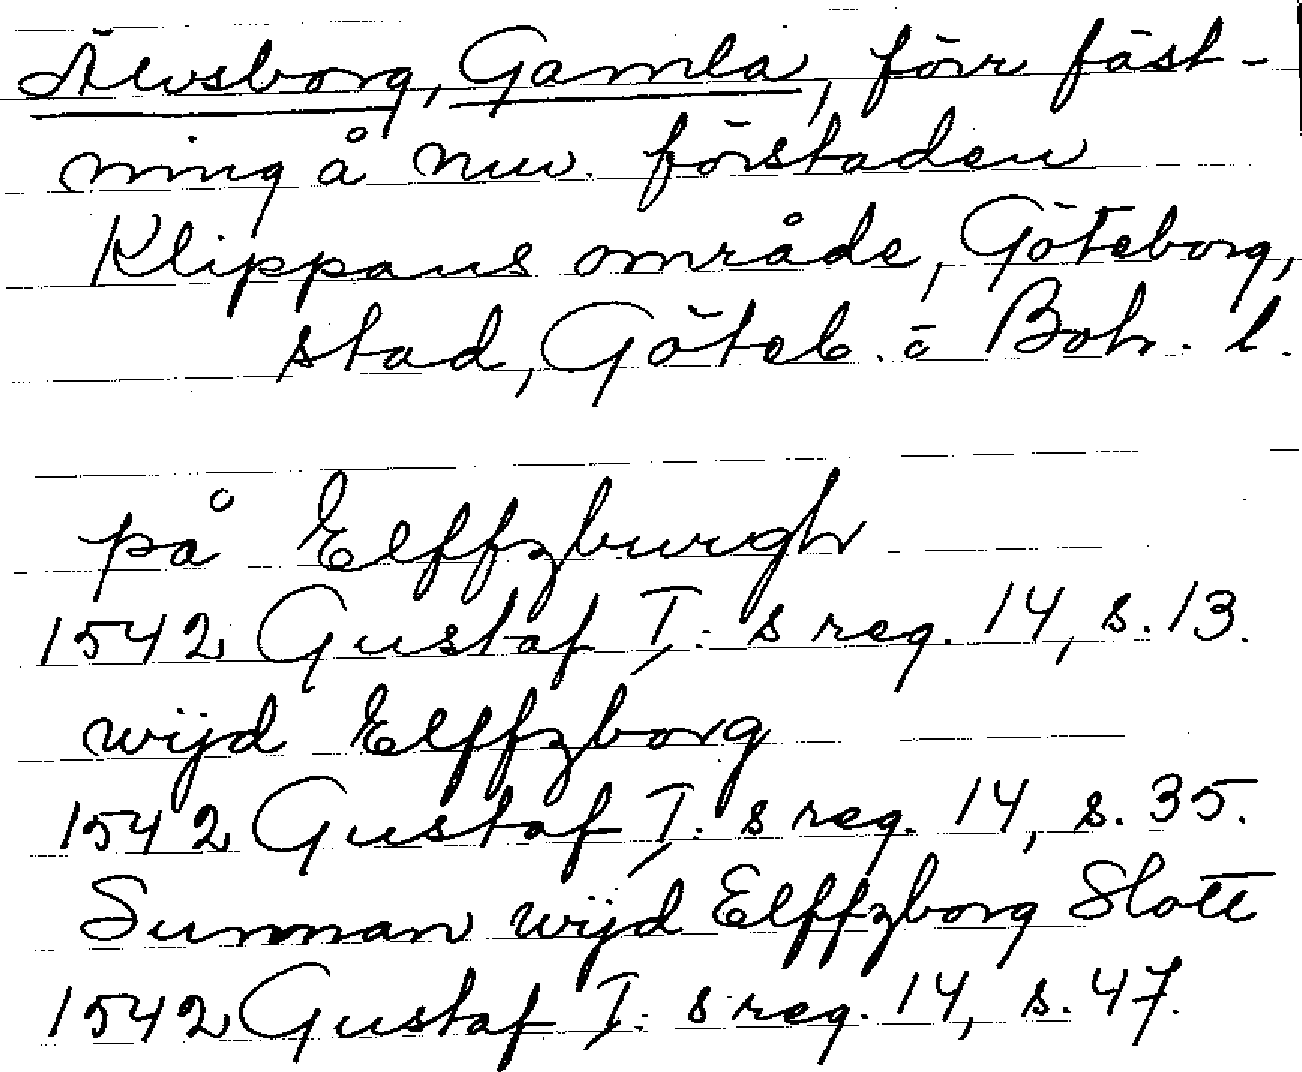 Älvsborg, Gamla, förr fäst-
ning å nuv. förstaden
Klippans område, Göteborg,
stad, Göteb. o Boh. l.
på Elffzburgh
1542 Gustaf I:s reg. 14, s. 13.
wijd Elffzborg
1542 Gustaf I:s reg. 14, s. 35.
Sunnan wijd Elffzborg Slott
1542 Gustaf I:s reg. 14, s. 47.